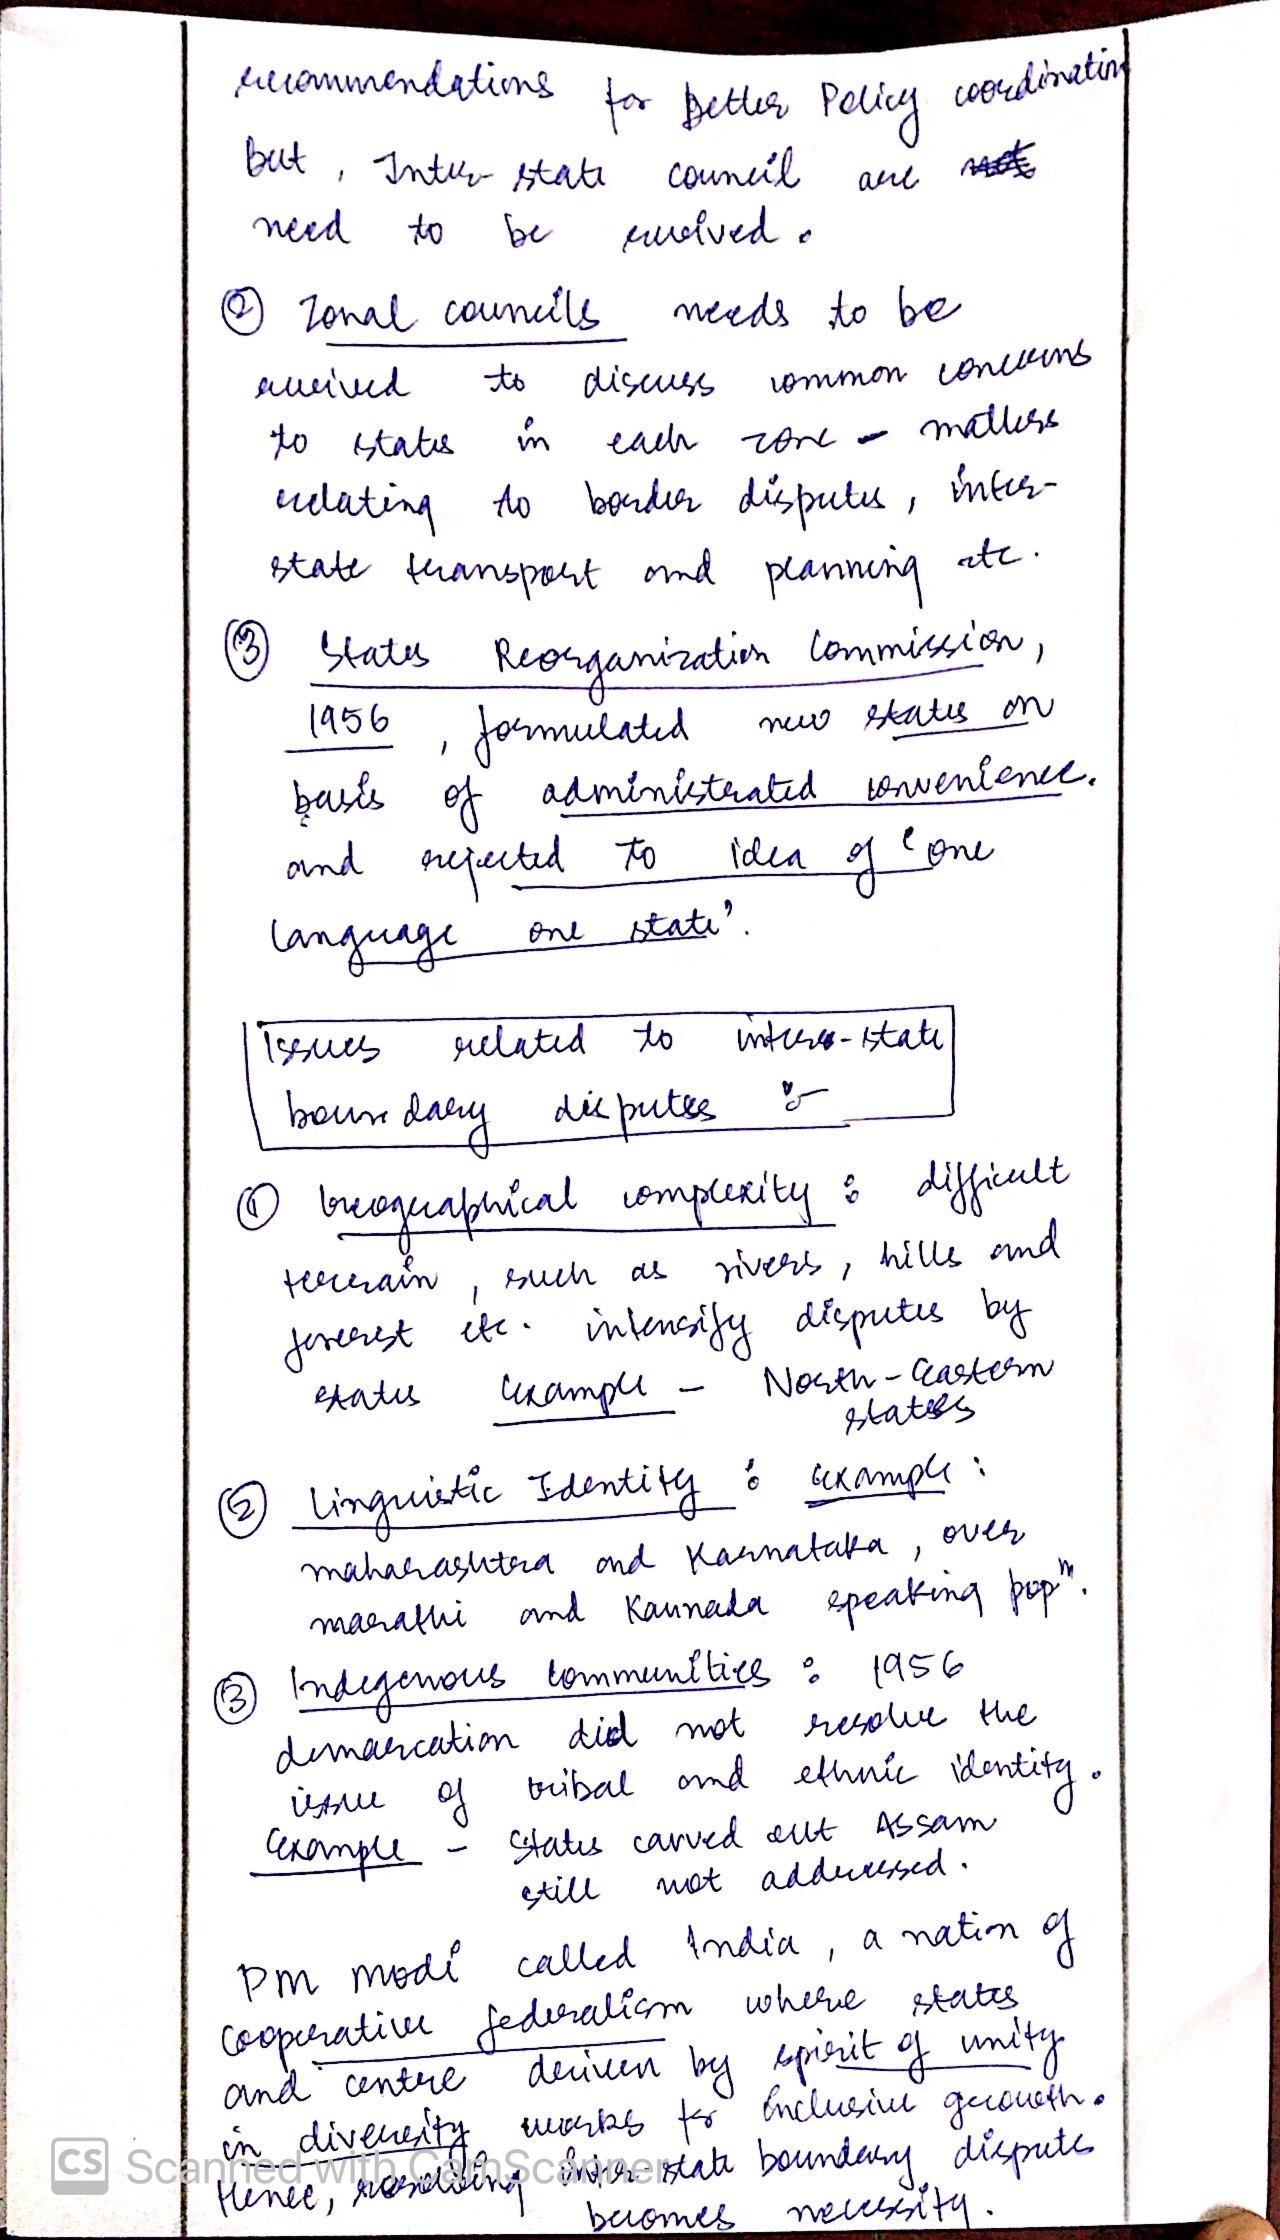 recommendations for better Policy coordination
But, Inter-state council are
need to be revived.
② Zonal councils needs to be
revived to discuss common concerns
to states in each zone - matters
relating to border disputes, inter-
state transport and planning etc.
③ States Reorganization Commission,
1956, formulated new states on
basis of administrated convenience.
and rejected to idea of 'one
language one state'.
Issues related to inter-state
boundary disputes :-
① Geographical complexity : difficult
terrain, such as rivers, hills and
forest etc. intensify disputes by
states Example - North-Eastern
states
② Linguistic Identity : Example :
maharashtra and Karnataka, over
marathi and Kannada speaking popⁿ.
③ Indegenous Communities : 1956
demarcation did not resolve the
issue of tribal and ethnic identity.
Example - States carved out Assam
still not addressed.
PM modi called India, a nation of
cooperative federalism where states
and centre driven by spirit of unity
in diversity works for inclusive growth.
Hence, resolving inter-state boundary dispute
becomes necessity.
CS Scanned with CamScanner